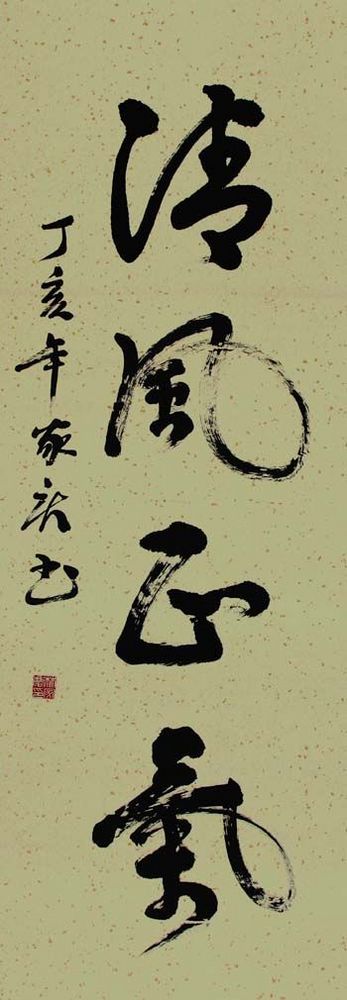 清風正氣
丁亥年家慶书